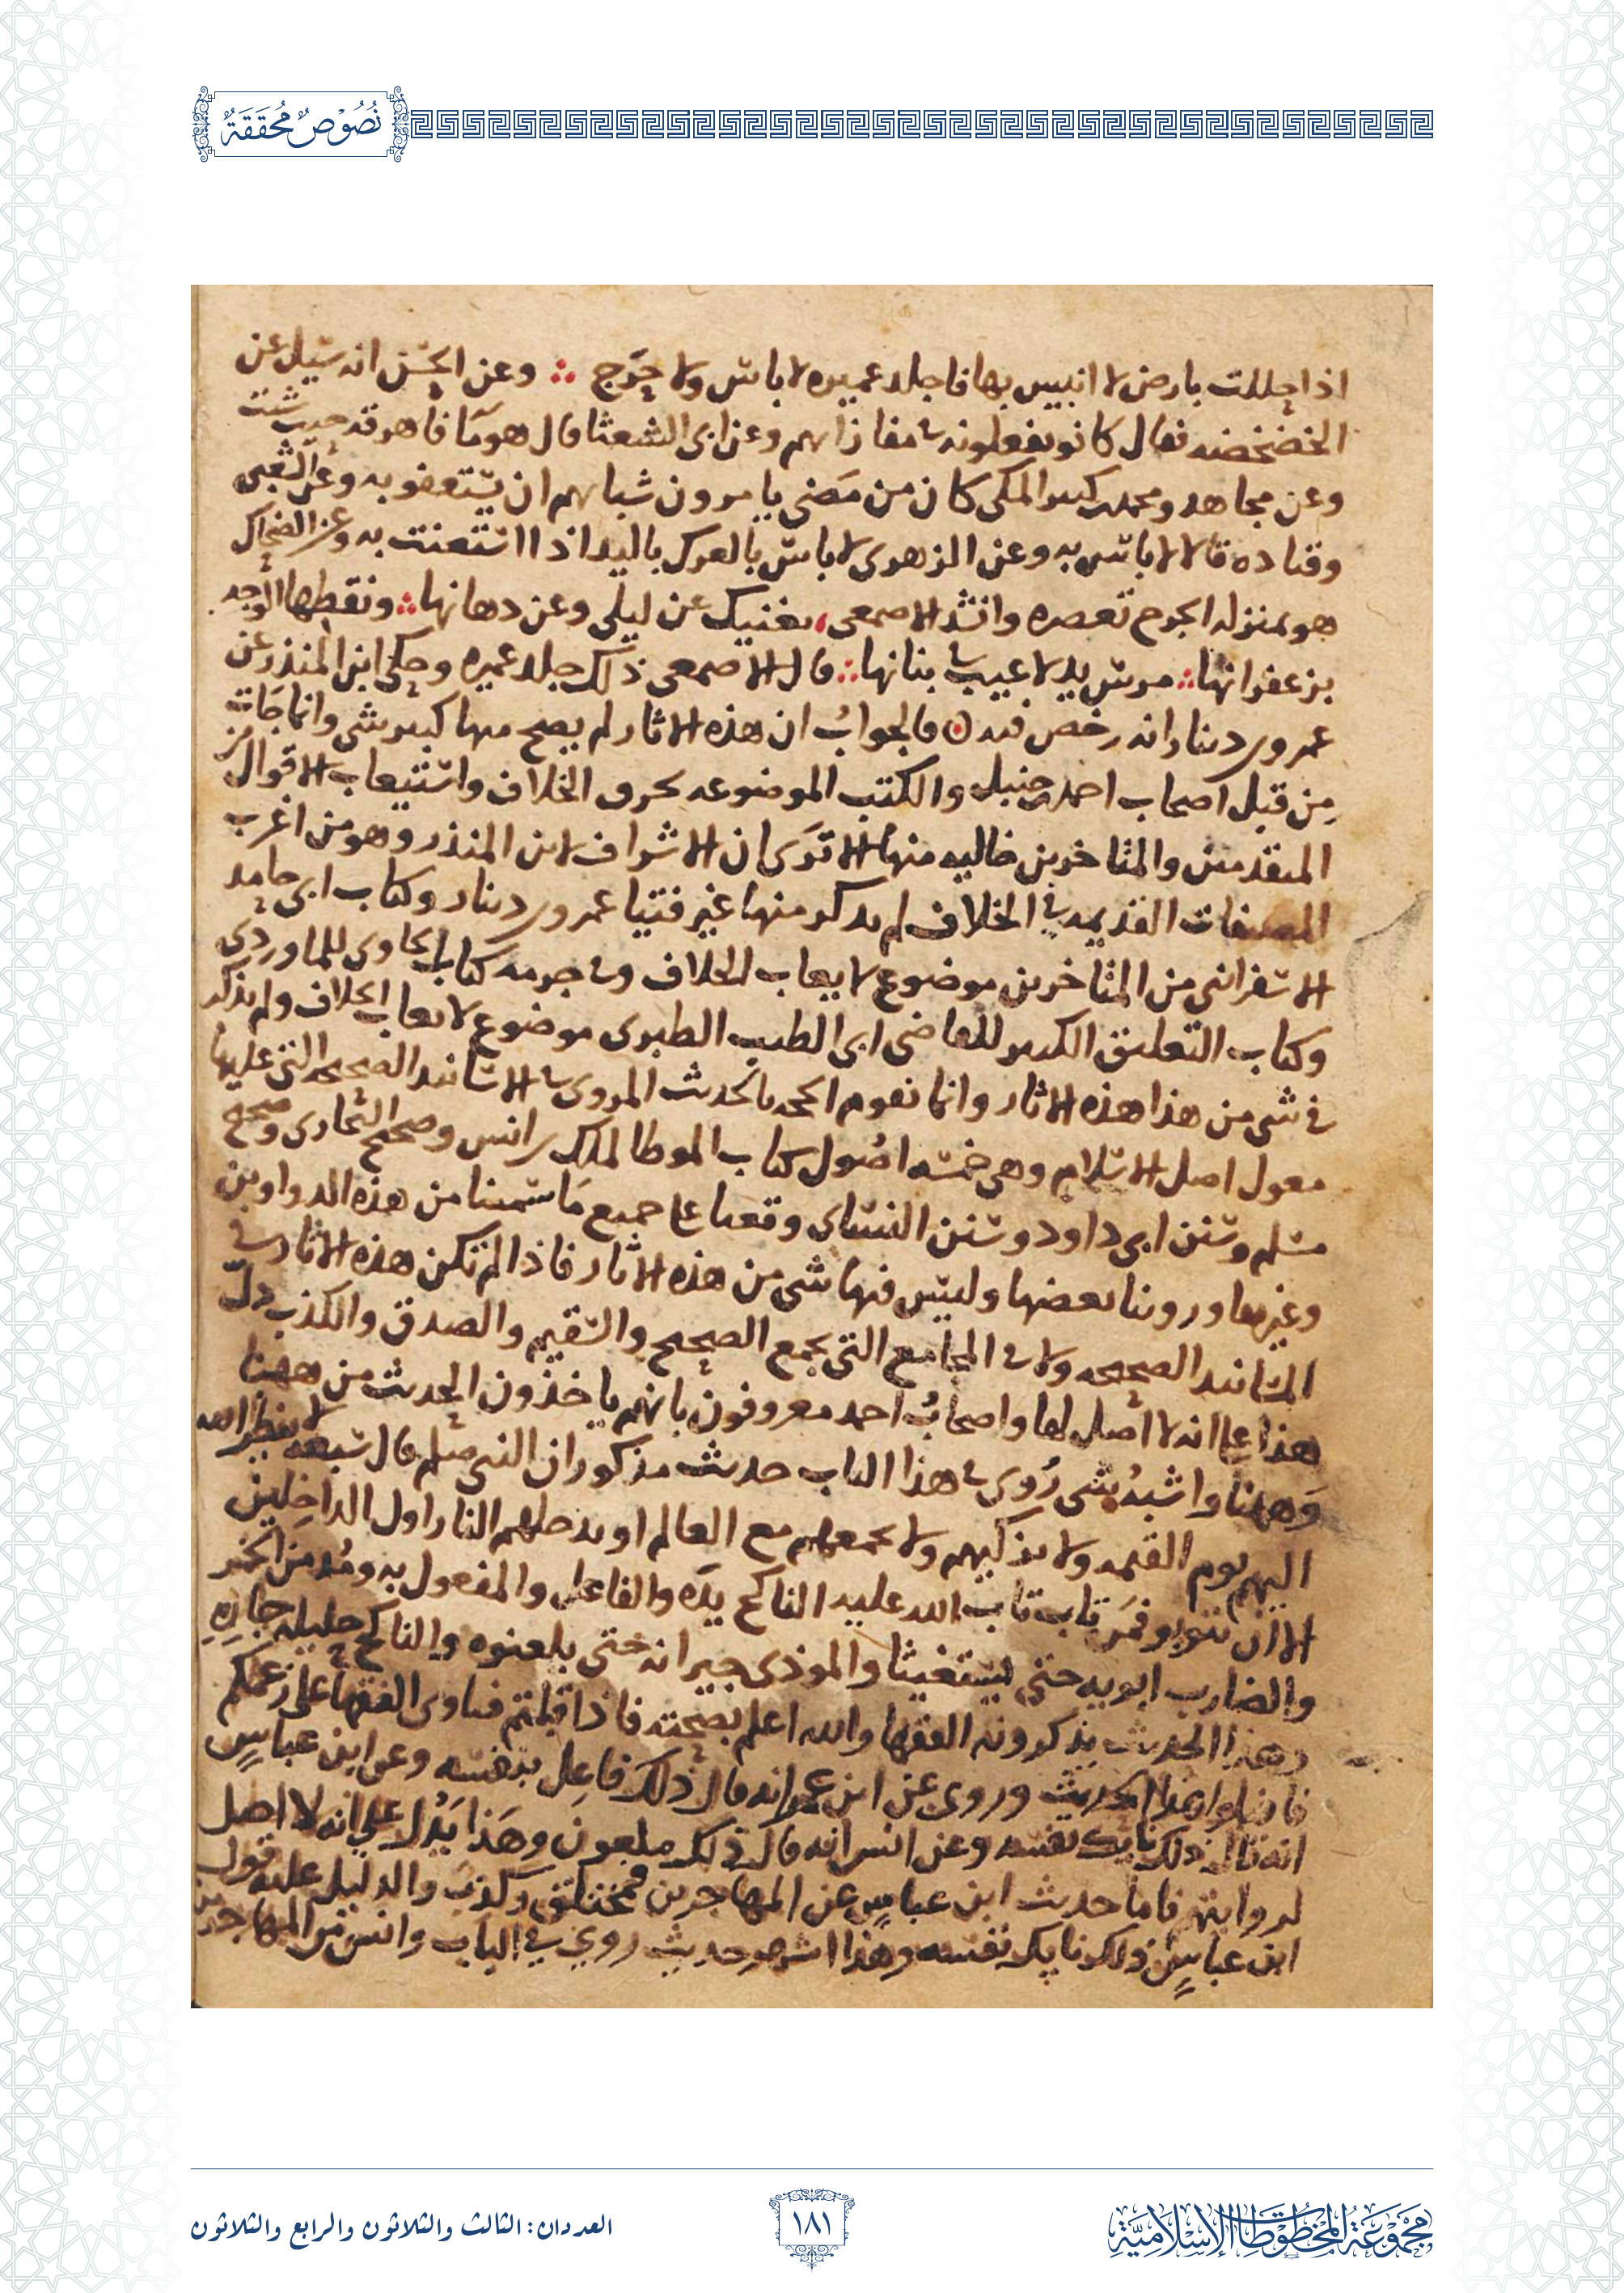 نُصُوْصٌ مُحَقَّقَةٌ
اذا حللت بارض لا انيس بها فاجلد عميره لا باس ولا حرج وعن الحسن انه سيل عن
الخضخضه فقال كانو يفعلونه في مغازانهم وعن ابي الشعثا قال هو مآ فاهرقه حيث شئت
وعن مجاهد ومحمد بن كثير المكي كان من مَضي يامرون شبابهم ان يستعفو به وعن الشعبي
وقتاده قالا لا باس به وعن الزهري لا باس بالعرك باليد اذا استعنت به وعن الضحاك
هو بمنزله الجرح تعصره وانشد الاصمعي يغنيك عن ليلي وعن دهانها ونقطها الوجه
بزعفرانها مرس يد لا عيب في بنانها قال الاصمعي ذلك جلد عميره وحكي ابن المنذر عن
عمرو بن دينار انه رخص فيه فالجوابُ ان هذه الاثار لم يصح منها كبير شي وانما جَات
مِن قبل اصحاب احمد بن حنبل والكتب الموضوعه بحرق الخلاف واستيعاب الاقوال من
المتقدمين والمتاخرين خاليه منها الا تَرَي ان الاشراف لابن المنذر وهو من اغرب
المصنفات القديمه في الخلاف لم يذكر منها غير فتيا عمرو بن دينار وكتاب ابي حامد
الاسفراني من المتاخرين موضوع لايعاب الخلاف وفي جرمه كتاب الحاوي للماوردي
وكتاب التعليق الكبير للقاضي ابي الطيب الطبري موضوع لايعاب الخلاف ولم يذكر
في شي من هذا هذه الاثار وانما تقوم الحجه بالحديث المروي في الاسانيد الصحيحه التي عليها
معول اصل الاسلام وهي خمسه اصُول كتاب الموطا لملك بن انس وصحيح البخاري وصحيح
مسلم وسنن ابي داود وسنن النسائي وقعنا علي جميع مَا سمينا من هذه الدواوين
وغيرها وروينا بعضها وليس فيها شي من هذه الاثار فاذا لم تكن هذه الاثار في
المسانيد الصحيحه ولا في المجامع التي بجمع الصحيح والسقيم والصدق والكذب دلّ
هذا علي انه لا اصل لها واصحابُ احمد معروفون بانهم ياخذون الحديث من ههنا
وَههنا واشبهُ شي رُوي في هذا الباب حديث مذكور ان النبي صلم قال سبعه لا ينظر الله
اليهم يوم القيمه ولا يزكيهم ولا يجمعهم مع العالم او يدخلهم النار اول الداخِلين
الا ان يتوبو فمَن تاب تاب الله عليه الناكح يدَه والفاعل والمفعول به ومُدمن الخمر
والضارب ابويه حتي يستغيثا والموذي جيرانه حتي يلعنوه والناكح حليله جارِه
وهذا الحديث يذكرونه الفقها والله اعلم بصحته فاذا قبلتم فتاوي الفقها علي زعمكم
فاقبلوا هذا الحديث وروي عن ابن عمر انه قال ذلك فاعِل بنفسه وعن ابن عباسٍ
انه قال ذلك نايك نفسه وعن انس انه قال ذلك ملعون وهَذا يَدُل علي انه لا اصل
لروايتهم فاما حديث ابن عباسٍ عن المهاجرين فمختلق وكذب والدليل عليه قول
ابن عباسٍ ذلك نايك نفسه وهذا اشهر حديث روي في الباب وانس من المهاجرين
مَجْمُوْعَةُ المَخْطُوْطَاتِ الإِسْلَامِيَّةِ
١٨١
العددان: الثالث والثلاثون والرابع والثلاثون